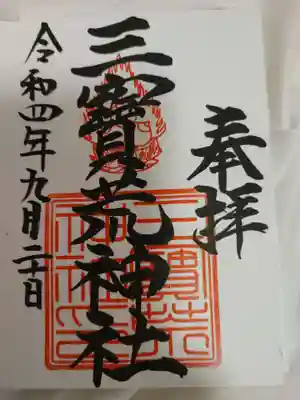 奉拝
三寳荒神社
令和四年九月二十日